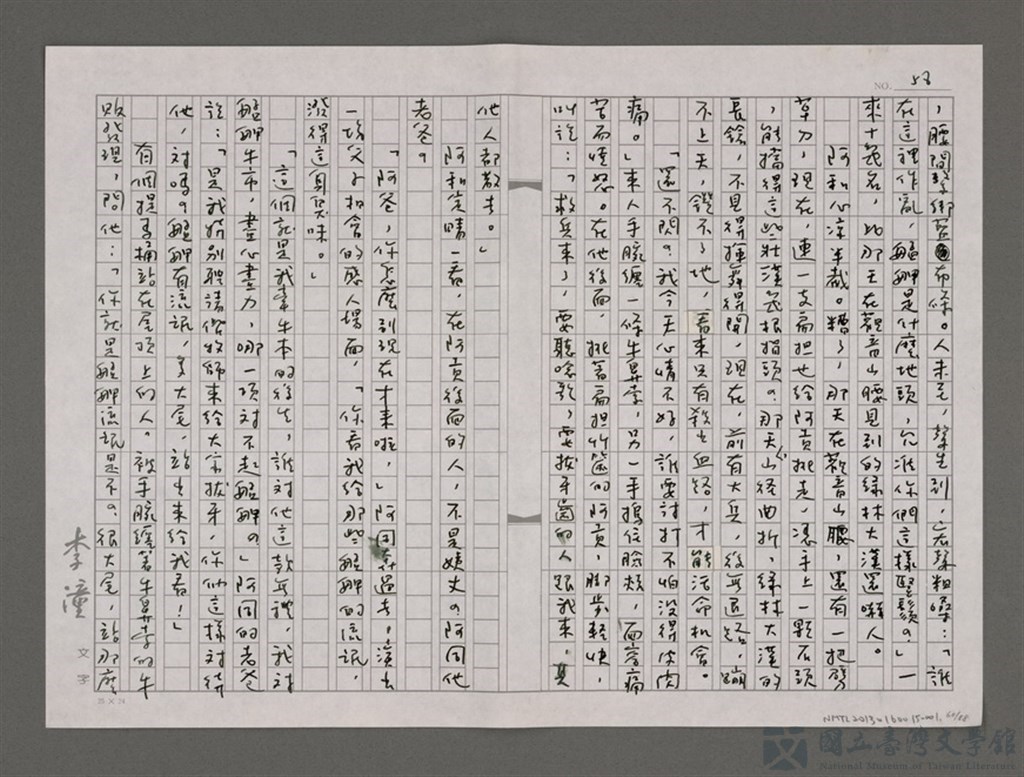 NO. 58
，腰間繫綁藍布條。人未至，聲先到，宏聲粗嗓：「誰
在這裡作亂，艋舺是什麼地頭，允准你們這樣堅鬚？」一
來十幾名，比那天在觀音山腰見到的綠林大漢還嚇人。
阿和心涼半截。糟了，那天在觀音山腰，還有一把劈
草刀，現在，連一支扁担也給阿貢挑走，憑手上一顆石頭
，能擋得這些壯漢幾根指頭？那天山徑曲折，綠林大漢的
長鎗，不見得揮舞得開，現在，前有大兵，後無退路，蹦
不上天，鑽不了地，看來只有殺出血路，才能活命机會。
「還不閃？我今天心情不好，誰要討打不怕沒得皮肉
痛。」來人手腕纏一條牛鼻索，另一手摀住臉頰，面容痛
苦而憤怒。在他後面，挑著扁担竹籃的阿貢，腳步輕快，
叫說：「救兵來了，要聽唸歌，要拔牙齒的人跟我來，其
他人都散去。」
阿和定睛一看，在阿貢後面的人，不是姨丈？阿同他
老爸。
「阿爸，你怎麼到現在才來啦，」阿同奔過去，演出
一場父子相會的感人場面，「你看我給那些艋舺的流氓，
潑得這身臭味。」
「這個就是我牽牛本的後生，誰對他這款無禮，我對
艋舺牛市，盡心盡力，哪一項對不起艋舺？」阿同的老爸
說：「是我特別聘請偕牧師來給大家拔牙，你們這樣對待
他，對嗎？艋舺有流氓，多大尾，站出來給我看！」
有個提香桶站在屋頂上的人。被手腕纏著牛鼻索的牛
販發現，問他：「你就是艋舺流氓是不？很大尾，站那麼
李潼
文字
25×24
NMTL20130160015-001
國立臺灣文學館
National Museum of Taiwan Literature